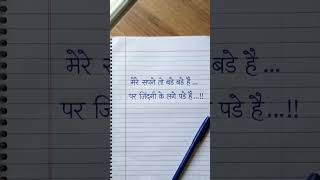 मेरे सपने तो बडे बडे है ...
पर जिंदगी के लगे पडे है ...!!